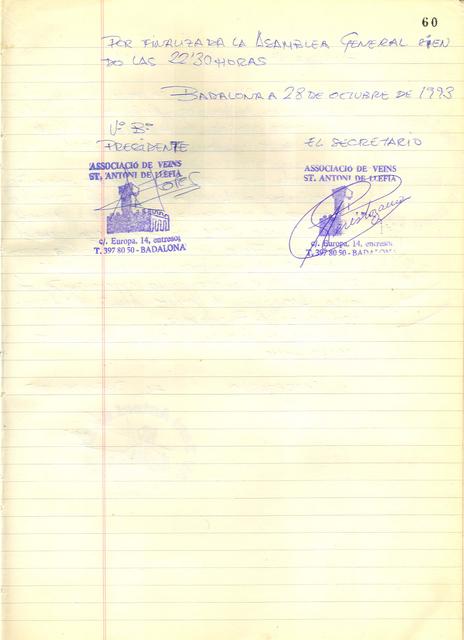 60
POR FINALIZADA LA ASAMBLEA GENERAL SIEN
DO LAS 22'30 HORAS
BADALONA A 28 DE OCTUBRE DE 1993
Vº Bº
PRESIDENTE
EL SECRETARIO
ASSOCIACIÓ DE VEINS
ST. ANTONI DE LLEFIA
c/. Europa, 14, entresol
T. 397 80 50 - BADALONA
ASSOCIACIÓ DE VEINS
ST. ANTONI DE LLEFIA
c/. Europa, 14, entresol
T. 397 80 50 - BADALONA